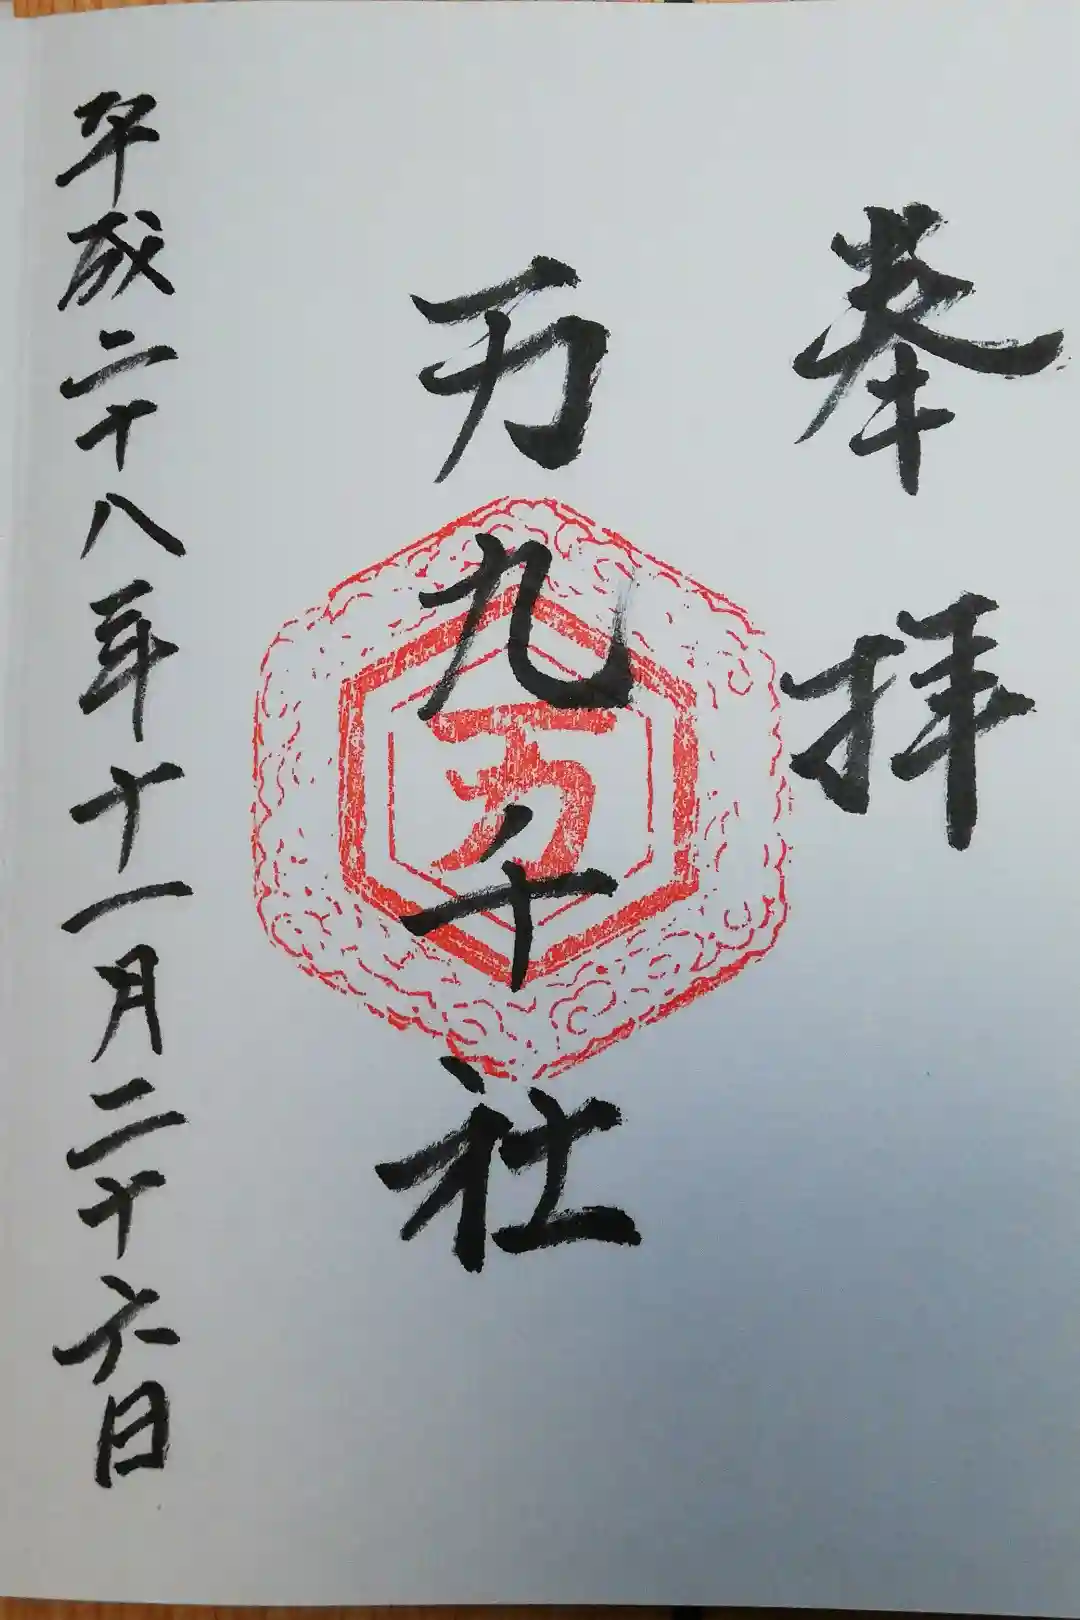 奉拝
万九千社
万
平成二十八年十一月二十六日